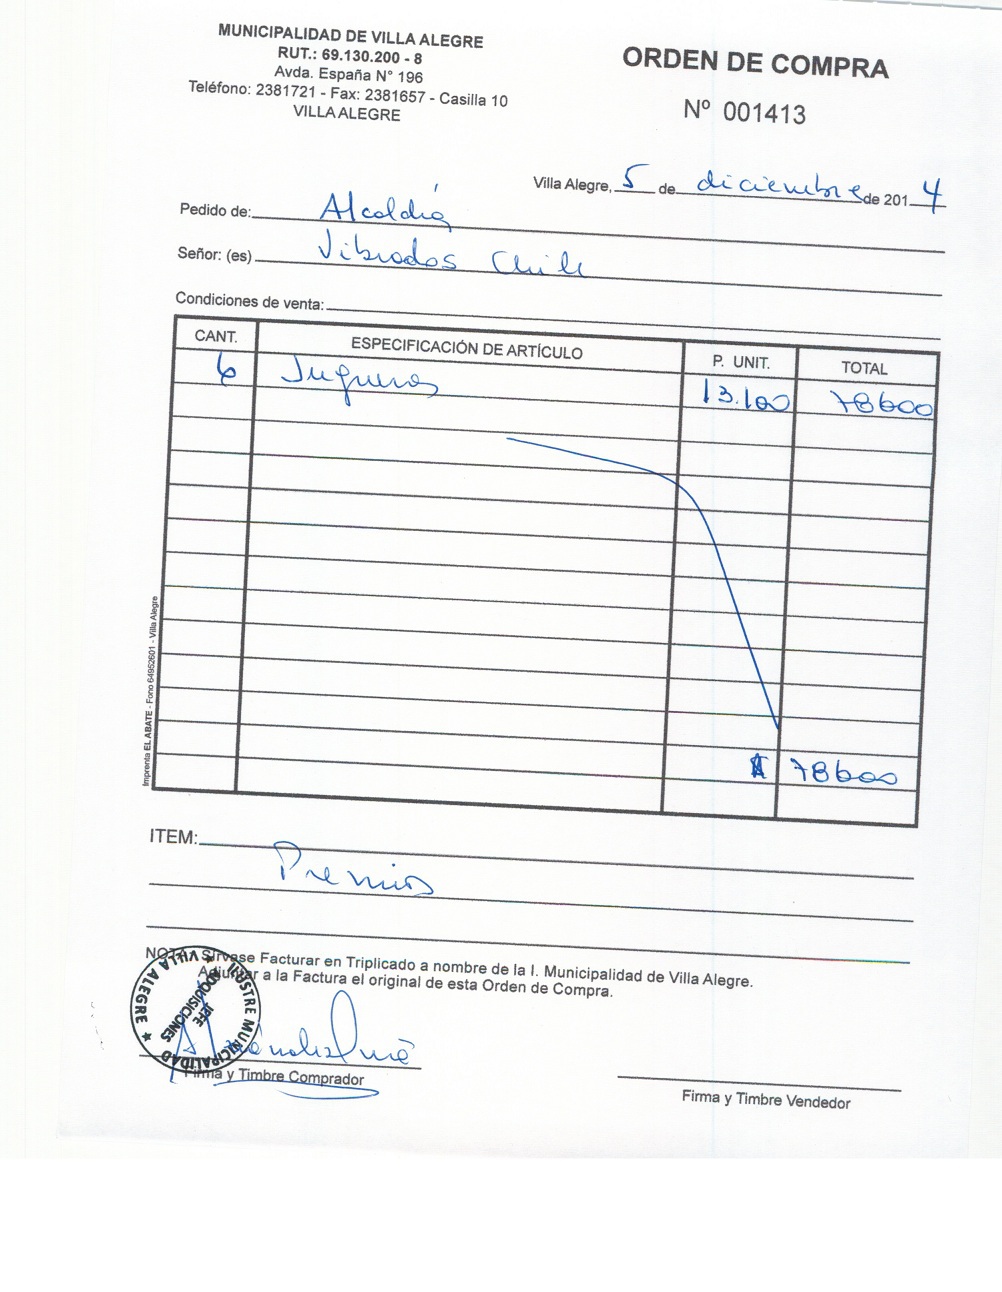 MUNICIPALIDAD DE VILLA ALEGRE
RUT.: 69.130.200 - 8
Avda. España N° 196
Teléfono: 2381721 - Fax: 2381657 - Casilla 10
VILLA ALEGRE
ORDEN DE COMPRA
Nº 001413
Villa Alegre, 5 de diciembre de 2014
Pedido de: Alcaldía
Señor: (es) Vibrados Chile
Condiciones de venta:
CANT. ESPECIFICACIÓN DE ARTÍCULO P. UNIT. TOTAL
6 Jugueras 13.100 78600
$ 78600
Imprenta EL ABATE - Fono 64952601 - Villa Alegre
ITEM:
Premios
NOTA: Sírvase Facturar en Triplicado a nombre de la I. Municipalidad de Villa Alegre.
Adjuntar a la Factura el original de esta Orden de Compra.
ILUSTRE MUNICIPALIDAD
VILLA ALEGRE
JEFE
ADQUISICIONES
Firma y Timbre Comprador
Firma y Timbre Vendedor